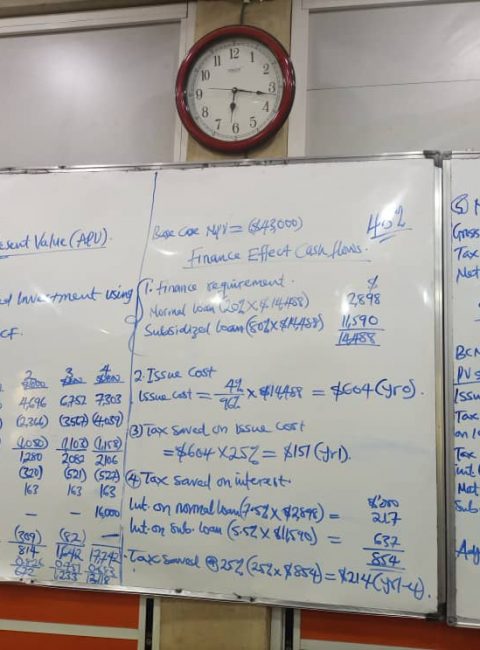 12
1
2
3
4
5
6
7
8
9
10
11
esent Value (APV).
ed Investment using
CF.
2 3 4
$000 $000 $000
4,696 6,752 7,303
(2,366) (3567) (4039)
(1,050) (1,103) (1,158)
1280 2082 2106
(320) (521) (527)
163 163 163
— — 16,000
(309) (82) —
814 1,642 17,742
Base case NPV = ($43,000)
402
Finance Effect Cash flows.
1. Finance requirement. $
Normal loan (20% X $14,488) 2,898
Subsidized loan (80% X $14488) 11,590
14,488
2. Issue Cost
Issue cost = 4%/96% X $14488 = $604 (yr0).
③ Tax saved on Issue cost
= $604 X 25% = $151 (yr1).
④ Tax saved on interest.
$'000
Int. on normal loan (7.5% X $2898) = 217
Int. on sub. loan (5.5% X $11,590) = 637
854
Tax saved @ 25% (25% X $854) = $214 (yr1-4).
⑤ N
Gross
Tax
Net
BCN
PV s
Issu
Tax
on 1
Tax
int.
Net
Sub.
Adj